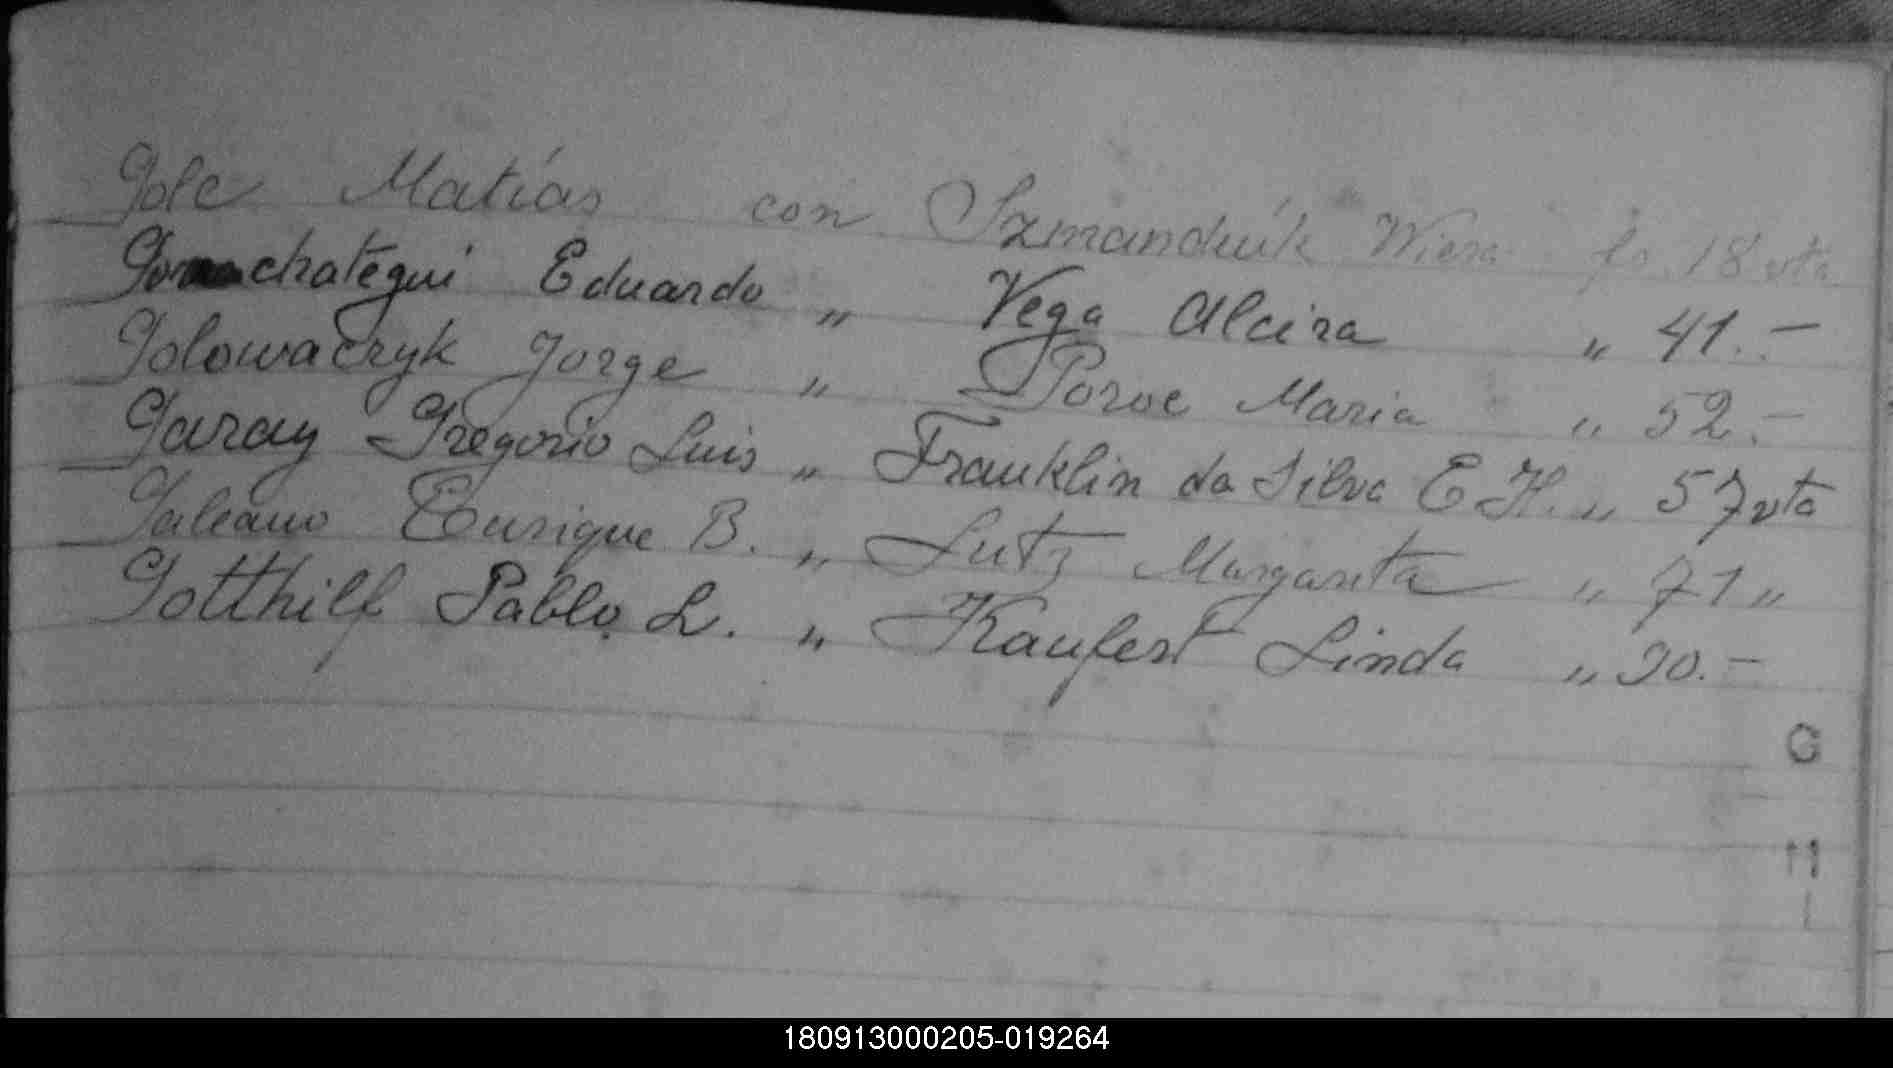 Gole Matías con Szmanduik Wiera fo. 18 vta
Gorrochategui Eduardo " Vega Alcira " 41.-
Golowaczyk Jorge " Poroe Maria " 52.-
Garay Gregorio Luis " Franklin da Silva E H. " 57 vta
Galeano Enrique B. " Lutz Margarita " 71 "
Gotthilf Pablo L. " Kaufert Linda " 90.-
180913000205-019264